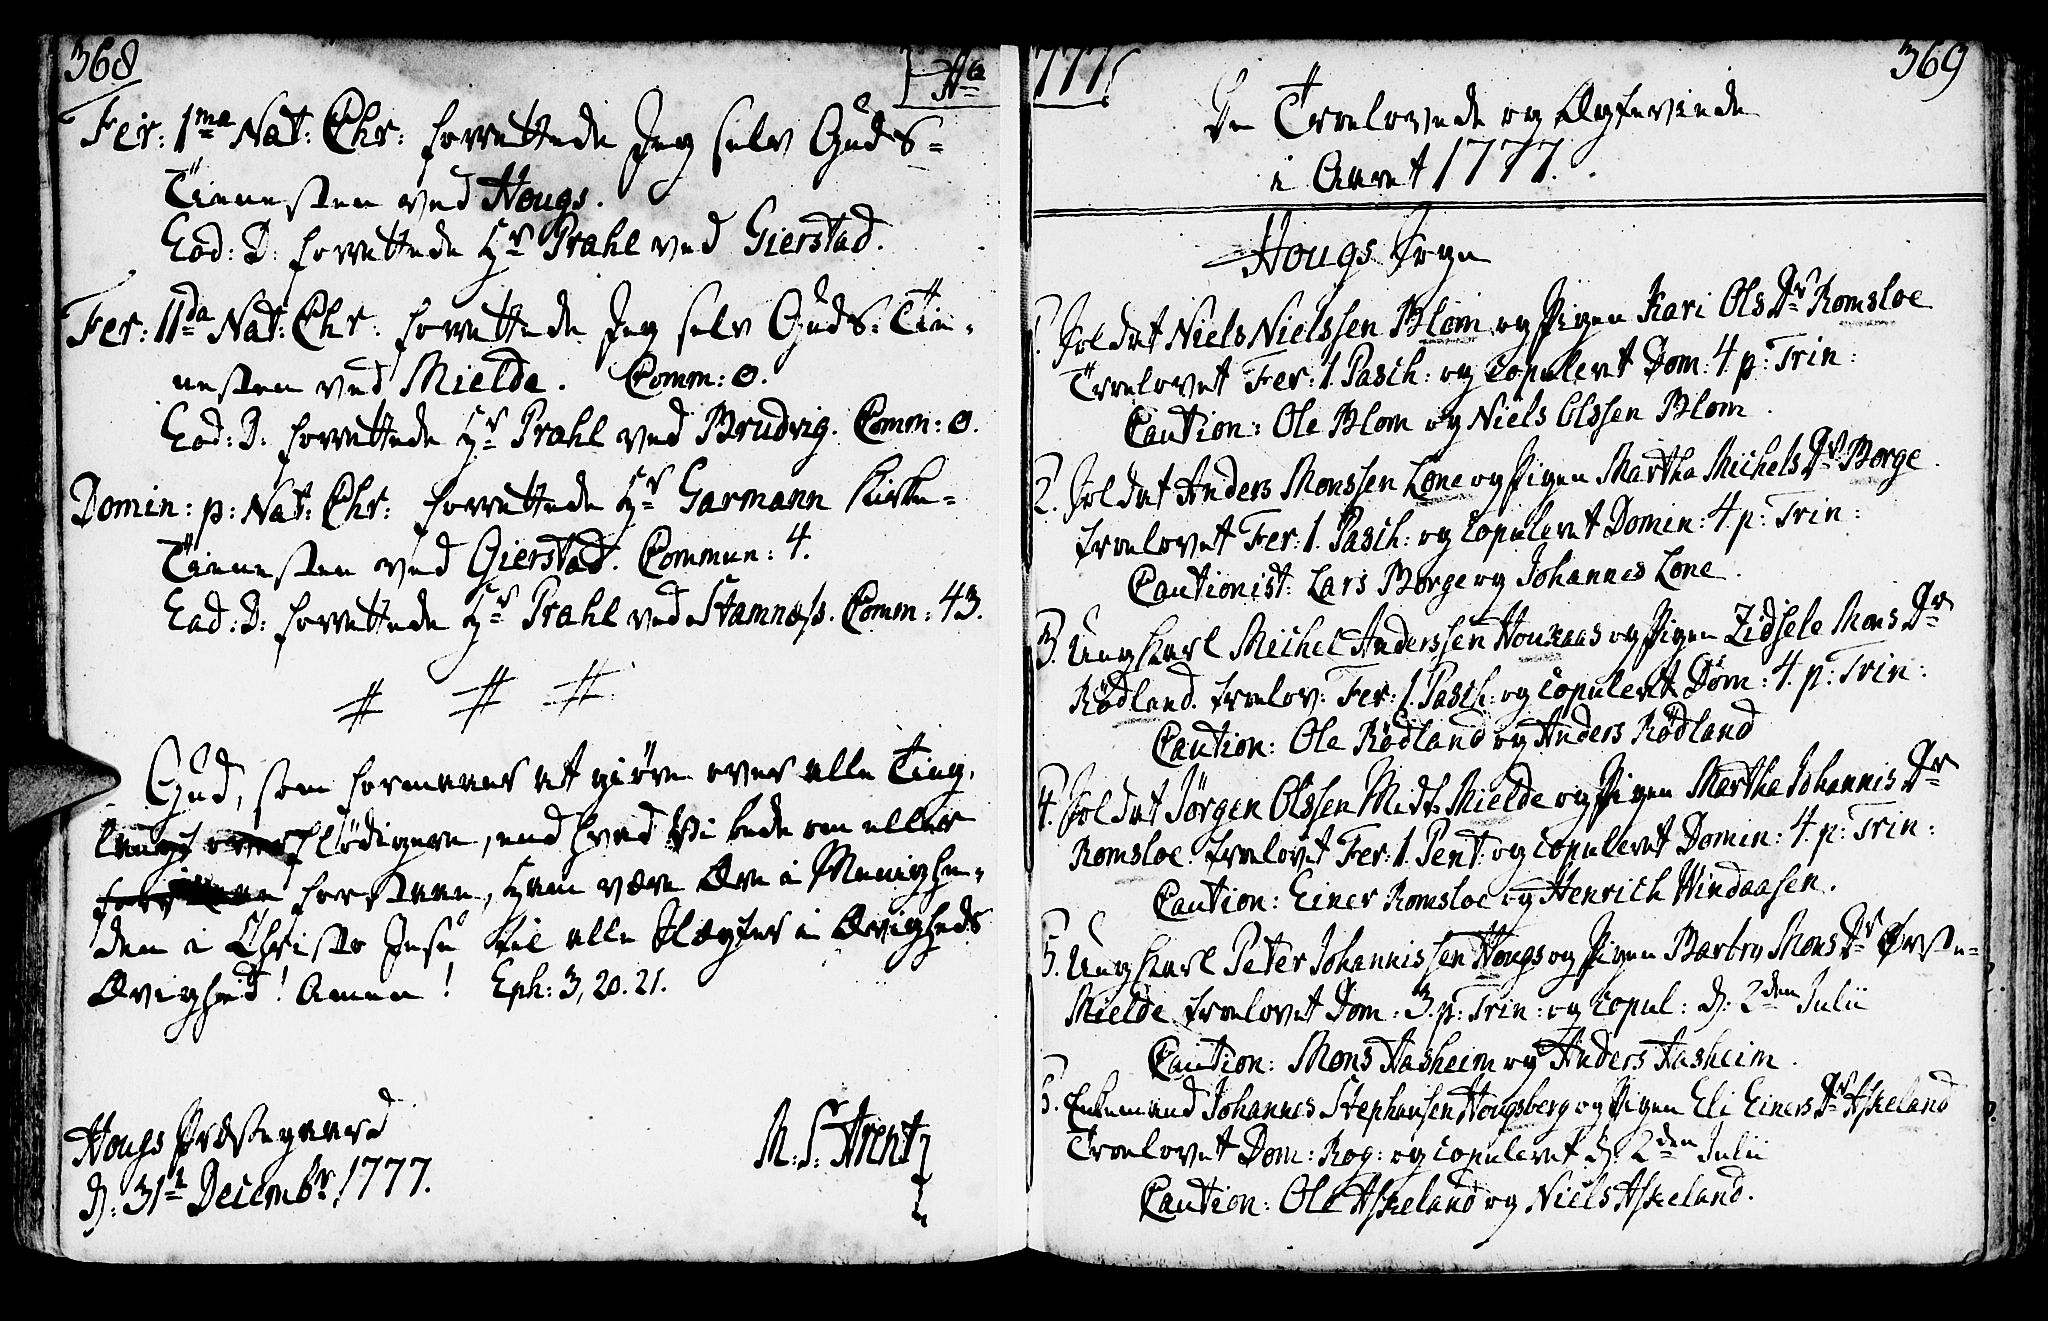 368
Aō
Fer: 1ma Nat: Chr: forrettede Jeg selv Guds-
Tienesten ved Hougs.
Eod: D: forrettede Hr Prahl ved Gierstad.
Fer: IIda Nat: Chr: forrettede Jeg selv Guds-Tie-
nesten ved Mielde. Comm: 0.
Eod: D: forrettede Hr Prahl ved Brudvig. Comm: 0.
Domin: p: Nat: Chr: forrettede Hr Garmann Kirke-
Tienesten ved Gierstad. Commun: 4.
Eod: D: forrettede Hr Prahl ved Stamnæss. Comm: 43.
# # #
Gud, som formaaer at giøre over alle Ting,
langt overflödigere, end hvad Vi bede om eller
forstaae, ham være Ære i Menighe-
den i Christo Jesu til alle Slægter i Ævigheds
Ævighed! Amen! Eph: 3, 20. 21.
Hougs Præstegaard
d: 31te Decembr. 1777.
M: S: Arentz
1777
369
De Troelovede og Ægteviede
i Aaret 1777.
Hougs Sogn
1. Soldat Niels Nielssen Blom og Pigen Kari Ols Dr Romsloe
Troelovet Fer: 1. Pasch: og copuleret Dom: 4 p: Trin:
Caution: Ole Blom og Niels Olssen Blom.
2. Soldat Anders Monssen Lone og Pigen Martha Michels Dr Borge.
troelovet Fer: 1. Pasch: og copuleret Domin: 4 p: Trin:
Cautionist: Lars Borge og Johannes Lone.
3. Ungkarl Michel Anderssen Houkaas og Pigen Zidsele Mons Dr
Rödland. troelov: Fer: 1. Pasch: og copuleret Dom: 4. p: Trin:
Caution: Ole Rödland og Anders Rödland
4. Soldat Jörgen Olssen Midt-Mielde og Pigen Martha Johannis Dr
Romsloe. troelovet Fer: 1. Pent: og copuleret Domin: 4. p: Trin:
Caution: Einer Romsloe og Henrich Windaasen.
5. Ungkarl Peter Johannissen Hougs og Pigen Barbry Mons Dr Øvste-
Mielde troelovet Dom: 3. p: Trin: og copul: d: 2den Julii
Caution: Mons Aasheim og Anders Aasheim.
6. Enkemand Johannes Stephansen Hougsberg og Pigen Eli Einers Dr Askeland
Troelovet Dom: Rog: og copuleret d: 2den Julii
Caution: Ole Askeland og Niels Askeland.